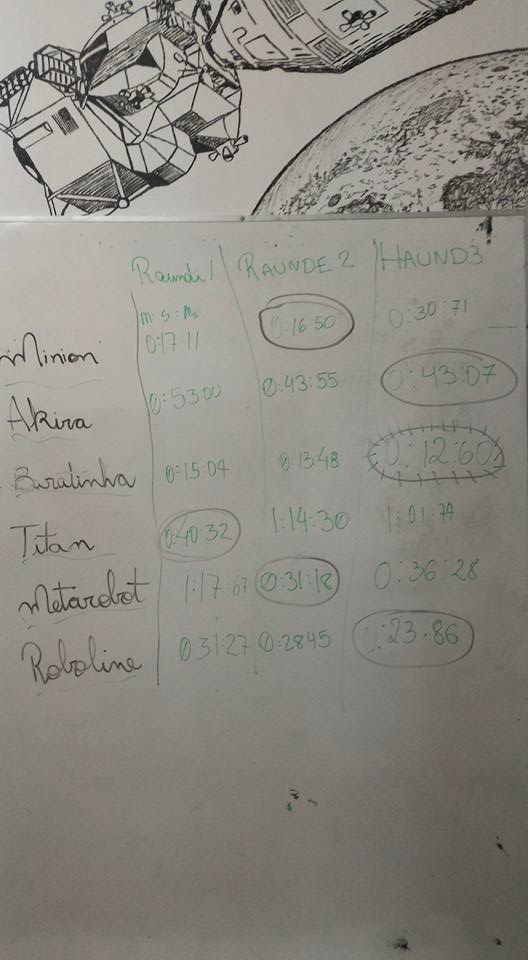 Raunde 1 RAUNDE 2 HAUND3
m s:m
Minion 0:17 11 0:16 50 0:30:71
Akira 0:53 00 0:43:55 0:43:07
Baratinha 0:15:04 0:13 48 0:12:60
Titan 0:40 32 1:14:30 1:01:74
Metarobot 1:17:67 0:31:18 0:36:28
Roboline 0 31:27 0:28 45 0:23.86